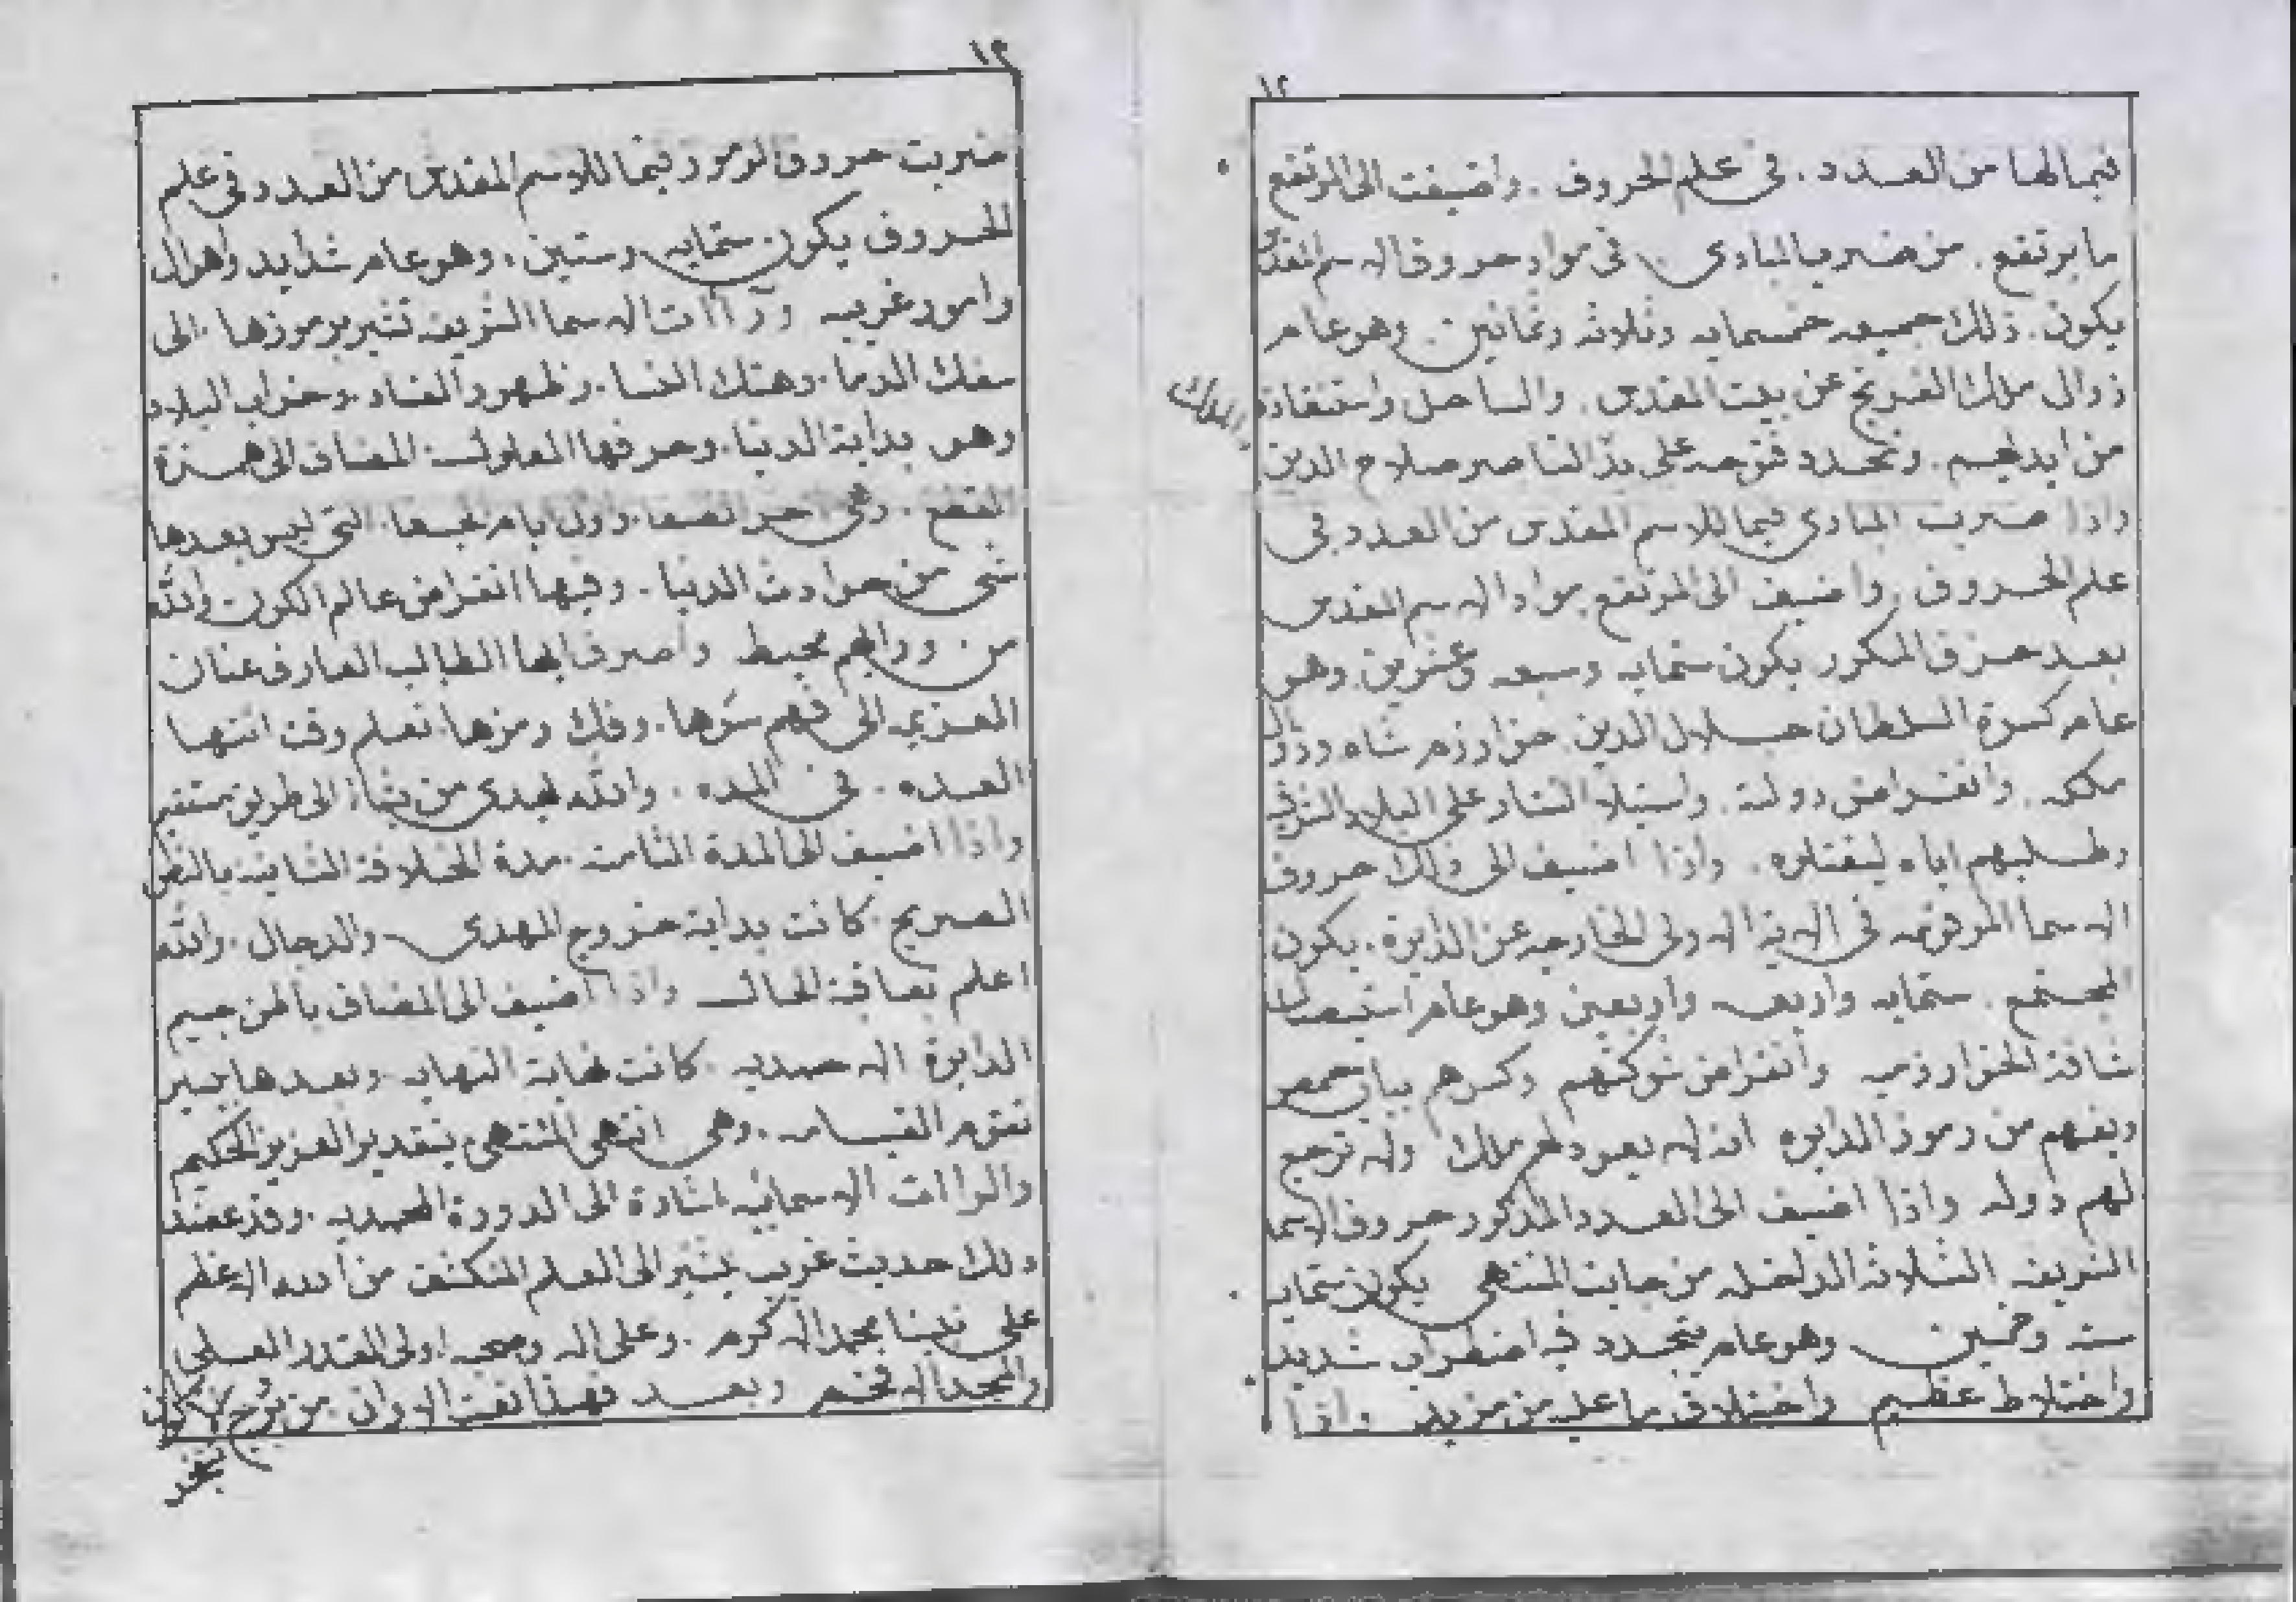 ١٢
فيما لها من العدد . في علم الحروف . واضيفت الى المرتفع
ما يرتفع . من ضرب المبادى . في مواد حروف الاسم المقدس
يكون . ذلك جميعه خمسمايه وثلاثه وثمانين . وهو عام
زوال ملك الفرنج عن بيت المقدس . والساحل واستنقاذه
والملوك
من ايديهم . وتجدد فتوحه على يد الناصر صلاح الدين
واذا ضربت المبادى فيما للاسم المقدس من العدد في
علم الحروف . واضيف الى المرتفع مواد الاسم المقدس
بعد حذف المكرر يكون ستمايه وسبعه وعشرين . وهو
عام كسرة السلطان جلال الدين خوارزم شاه وزوال
ملكه . وانقراض دولته . واستيلا التتار على البلاد الشرقيه
وطلبهم اياه ليقتلوه . واذا اضيف الى ذلك حروف
الاسما المرقومه في الاية الاولى الخارجه عن الدايرة . يكون
المجتمع . ستمايه واربعه واربعين وهو عام استيصال
شافة الخوارزميه وانقراض شوكتهم وكسرهم بباب حمص
ويفهم من رموز الدايره انه لا يعود لهم ملك ولا ترجع
لهم دوله واذا اضيف الى العدد المذكور حروف الاسما
الشريفه الثلاثه الداخله من جانب المنتهى يكون ستمايه
سته وخمسين وهو عام يتجدد فيه اضطراب شديد
واختلاط عظيم واختلاف ما عليه من مزيد . واذا
١٣
ضربت حروف الرموز فيما للاسم المقدس من العدد في علم
الحروف يكون . ستمايه وستين . وهو عام شدايد واهوال
وامور غريبه وراآت الاسما الشريفه تشير برموزها . الى
سفك الدما . وهتك النسا . وظهور الفساد . وخراب البلاد
وهو بداية الدنيا . وحرفها المعلول . المضاف الى همزة
القطع . وهي اخر وأول ايام التي ليس بعدها
شي من حوادث الدنيا . وفيها انقراض عالم الكون والله
من ورايهم محيط واصرف ايها الطالب العارف عنان
العزيمه الى فهم سرها . وفك رمزها . تعلم وقت انتها
العده . في المده . والله يهدى من يشاء الى طريق مستقيم
واذا اضيف الى المدة الثامنه . مدة الخلافة الثابته بالنص
الصريح . كانت بداية خروج المهدى والدجال . والله
اعلم بعاقبة الحال واذا اضيف الى المضاف بالهن جيم
الدايرة الاحمديه . كانت غاية النهايه . وبعدها بيسير
تقوم القيامه . وهي انتهى المنتهى بتقدير العزيز الحكيم
والراات الاسمائيه اشارة الى الدورة المحمديه . وقد عضد
ذلك حديث غريب يشير الى العلم المنكشف من الله الاعظم
على نبينا محمد الاكرم . وعلى اله وصحبه اولى القدر العلي
والمجد الافخم وبعد فهذا نفث الاوان . من